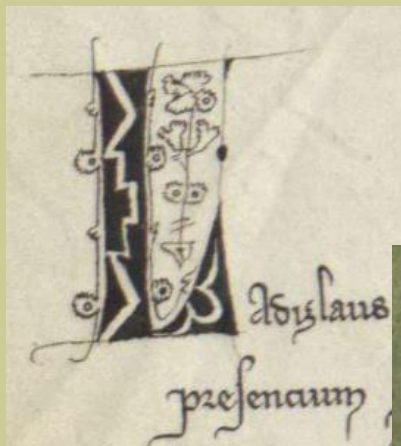 Ladislaus
presencium